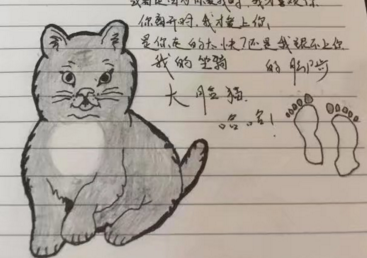 你离开时,我才爱上你,
是你走的太快了还是我跟不上你
的脚步
我的坐骑
大脸猫
哈哈!